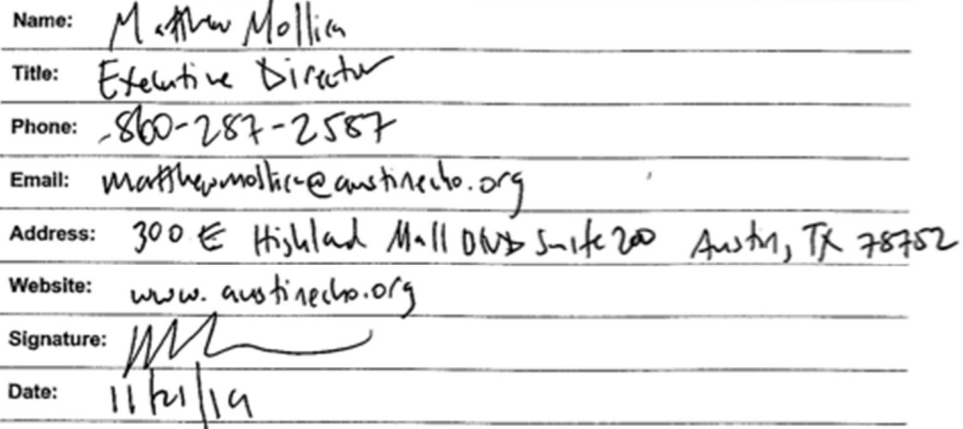 Name: Matthew Mollica
Title: Executive Director
Phone: 860-287-2587
Email: matthewmollica@austinecho.org
Address: 300 E Highland Mall BLVD Suite 200 Austin, TX 78752
Website: www.austinecho.org
Signature:
Date: 11/21/19